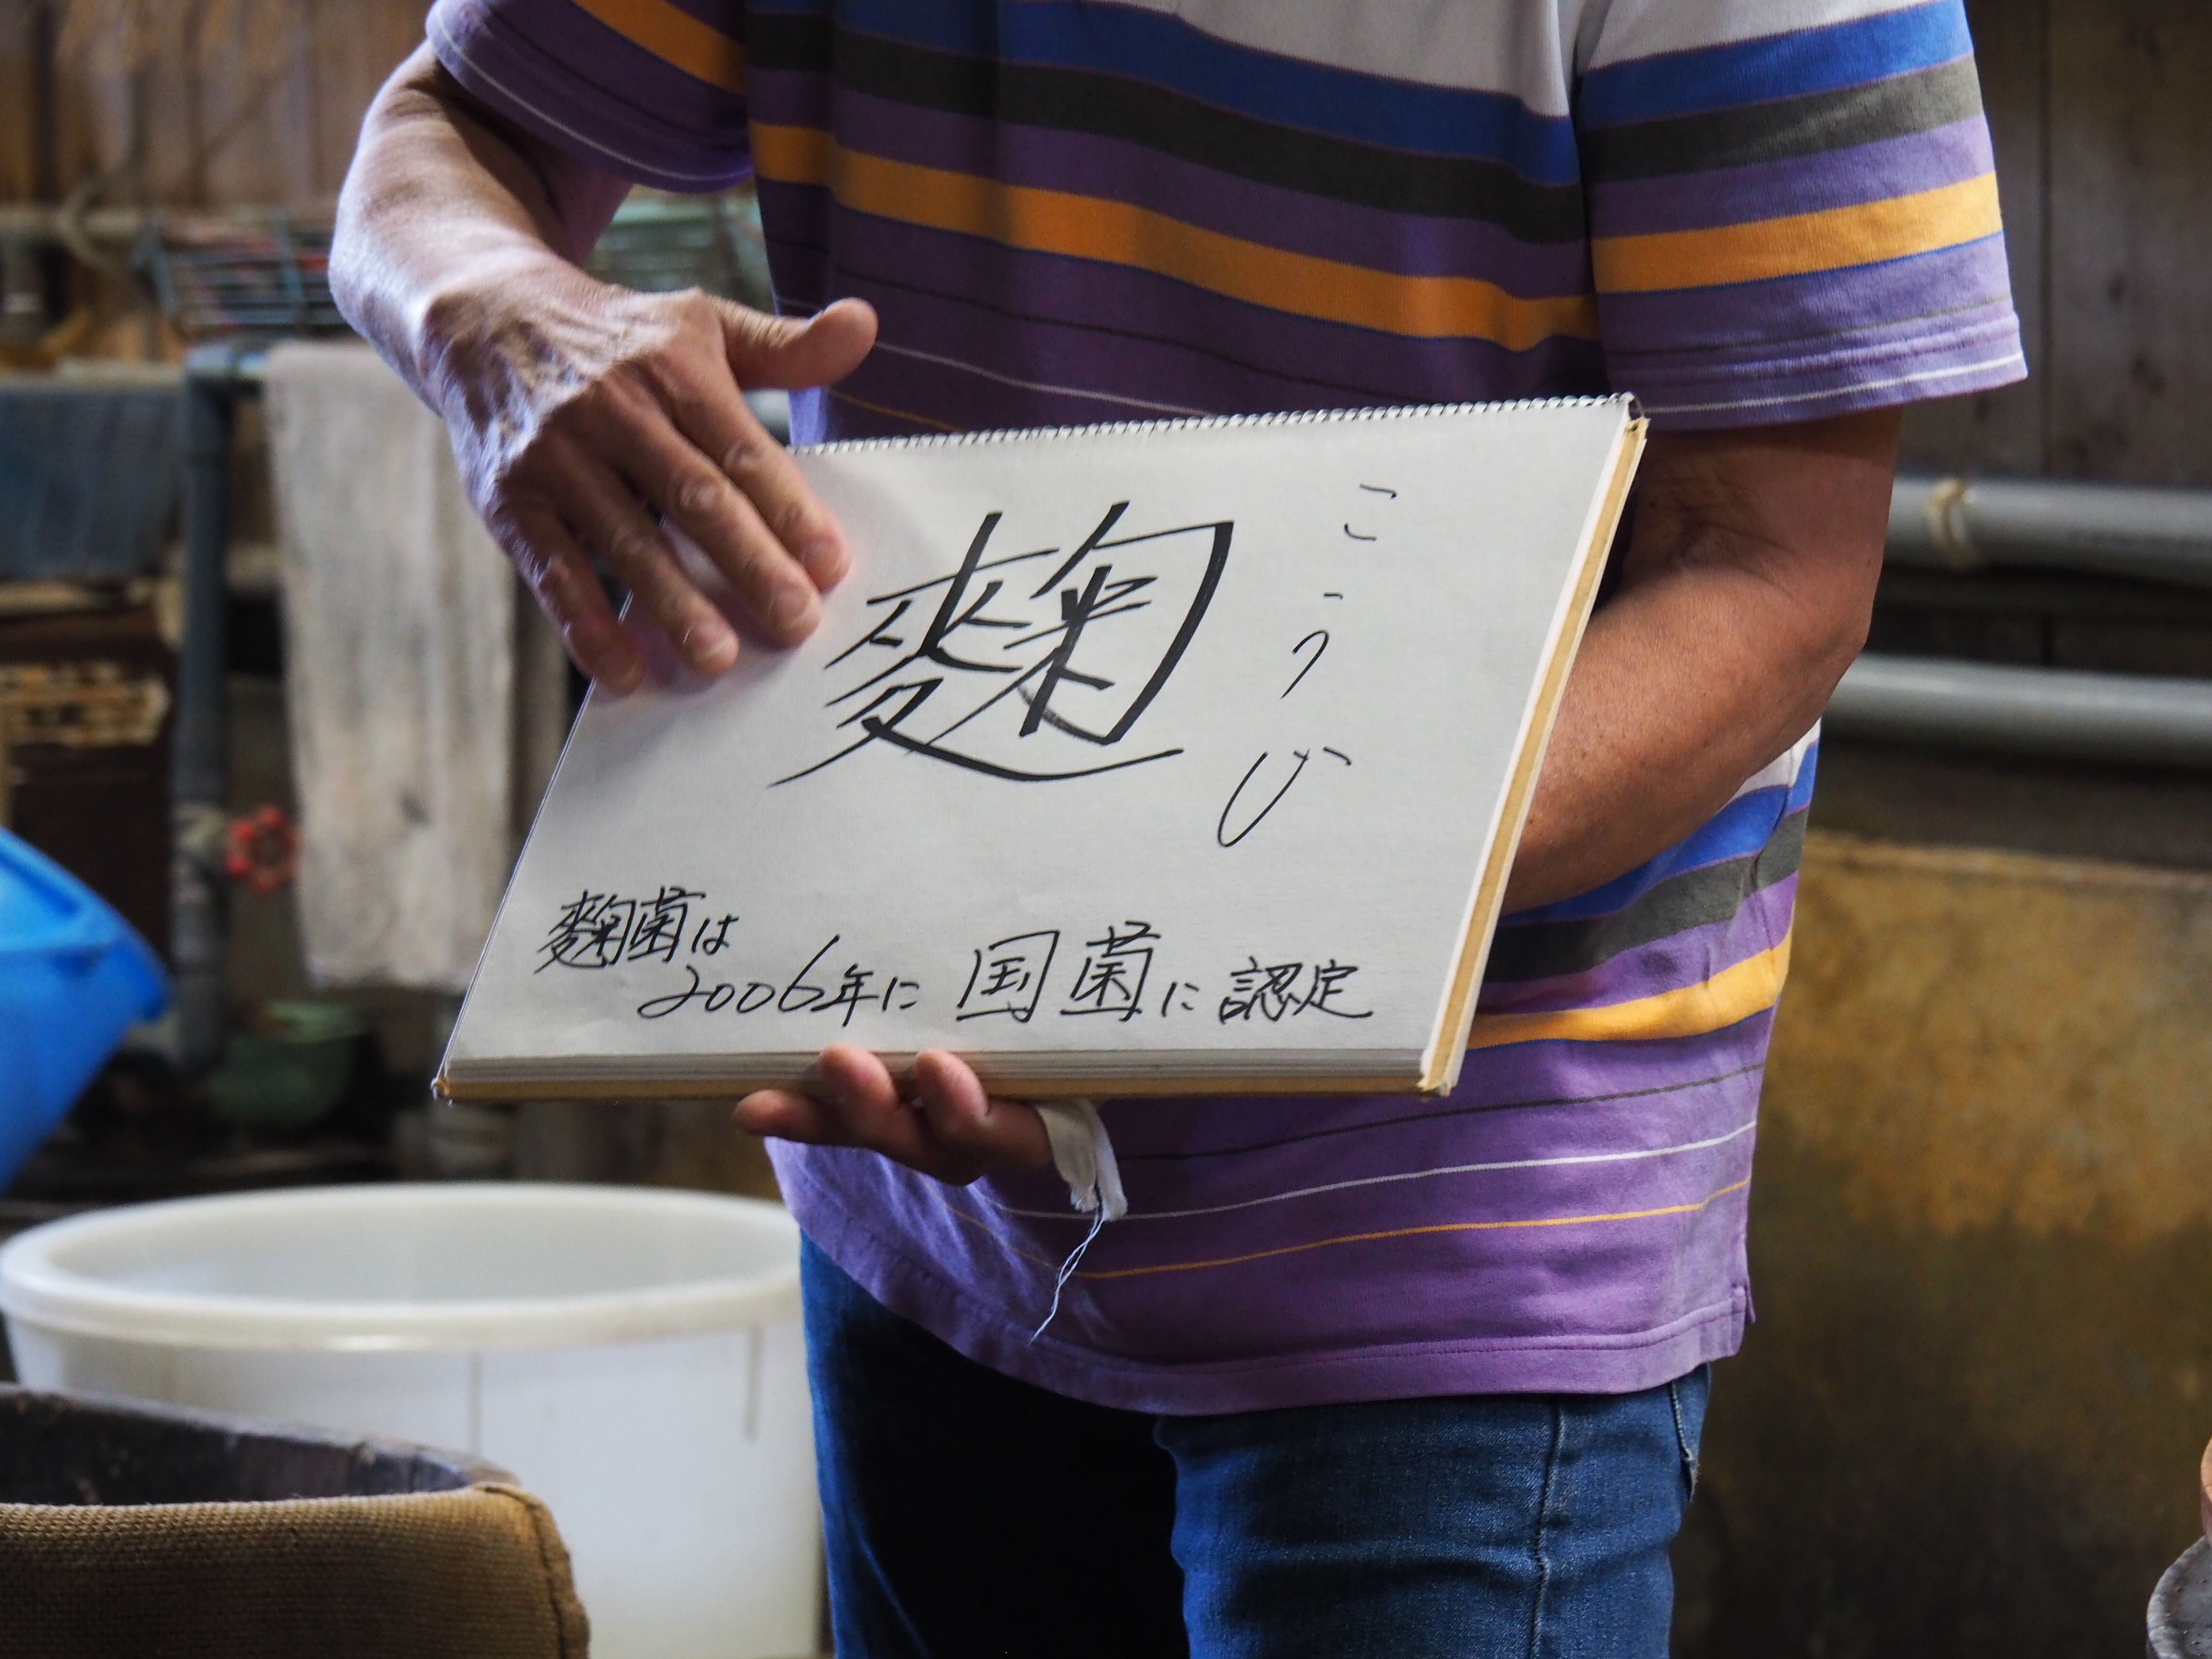 麴
こうじ
麴菌は
2006年に国菌に認定